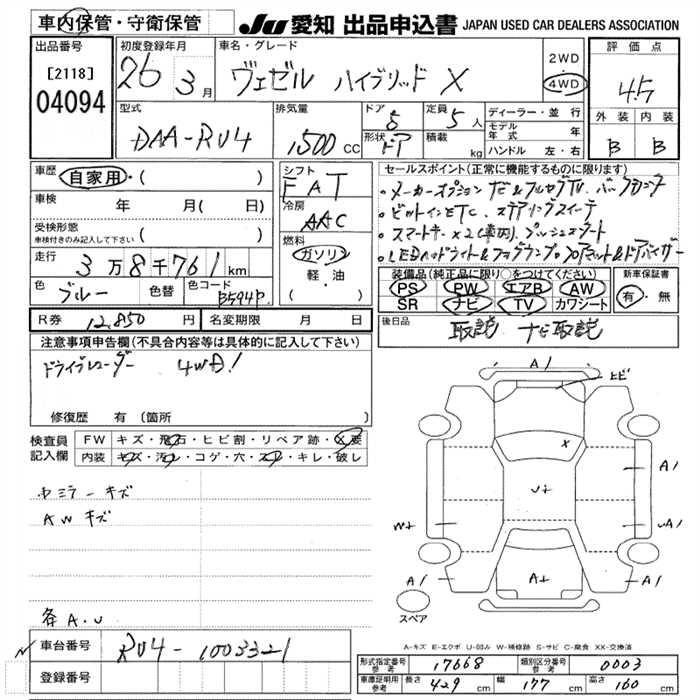 車内保管・守衛保管
JU 愛知 出品申込書 JAPAN USED CAR DEALERS ASSOCIATION
出品番号
[2118]
04094
初度登録年月
26 3月
車名・グレード
ヴェゼル ハイブリッド X
2WD
4WD
評価点
4.5
外装 内装
B B
型式
DAA-RU4
排気量
1500 CC
ドア
5
形状
定員
5人
積載
kg
ディーラー・並行
モデル年式 年
ハンドル 左・右
車歴
自家用・( )
車検
年 月( )
受検形態
車検付きのみ記入して下さい ( )
走行
3万8千761km
色
ブルー
色替
色コード
B594P
シフト
FAT
冷房
AAC
燃料
ガソリン
軽・油
( )
セールスポイント(正常に機能するものに限ります)
・メーカーオプション ナビ&フルセグTV、バックカメラ
・ビルトインETC、ステアリングスイッチ
・スマートキー×2(車両)、プッシュスタート
・LEDヘッドライト&フォグランプ、フロアマット&ドアバイザー
装備品(純正品に限り○をつけてください)
PS PW エアB AW
SR ナビ TV カワシート
新車保証書
有・無
R券 12,850円
名変期限 月 日
後日品 取説 ナビ取説
注意事項申告欄(不具合内容等は具体的に記入して下さい)
ドライブレコーダー 4WD!
修復歴 有(箇所 )
検査員記入欄
FW キズ・飛石・ヒビ割・リペア跡・X要
内装 キズ・汚れ・コゲ・穴・スレ・キレ・破し
ミラーキズ
AWキズ
各A.U
A1
ヒビ
X
A1
U+
uA1
A1
A+
A1
スペア
A-キズ E-エクボ U-凹み W-補修跡 S-サビ C-腐食 XX-交換済
車台番号 RU4-1003321
登録番号
形式指定番号 参考 17668
類別区分番号 参考 0003
車庫証明用 参考 長さ 429 cm 幅 177 cm 高さ 160 cm